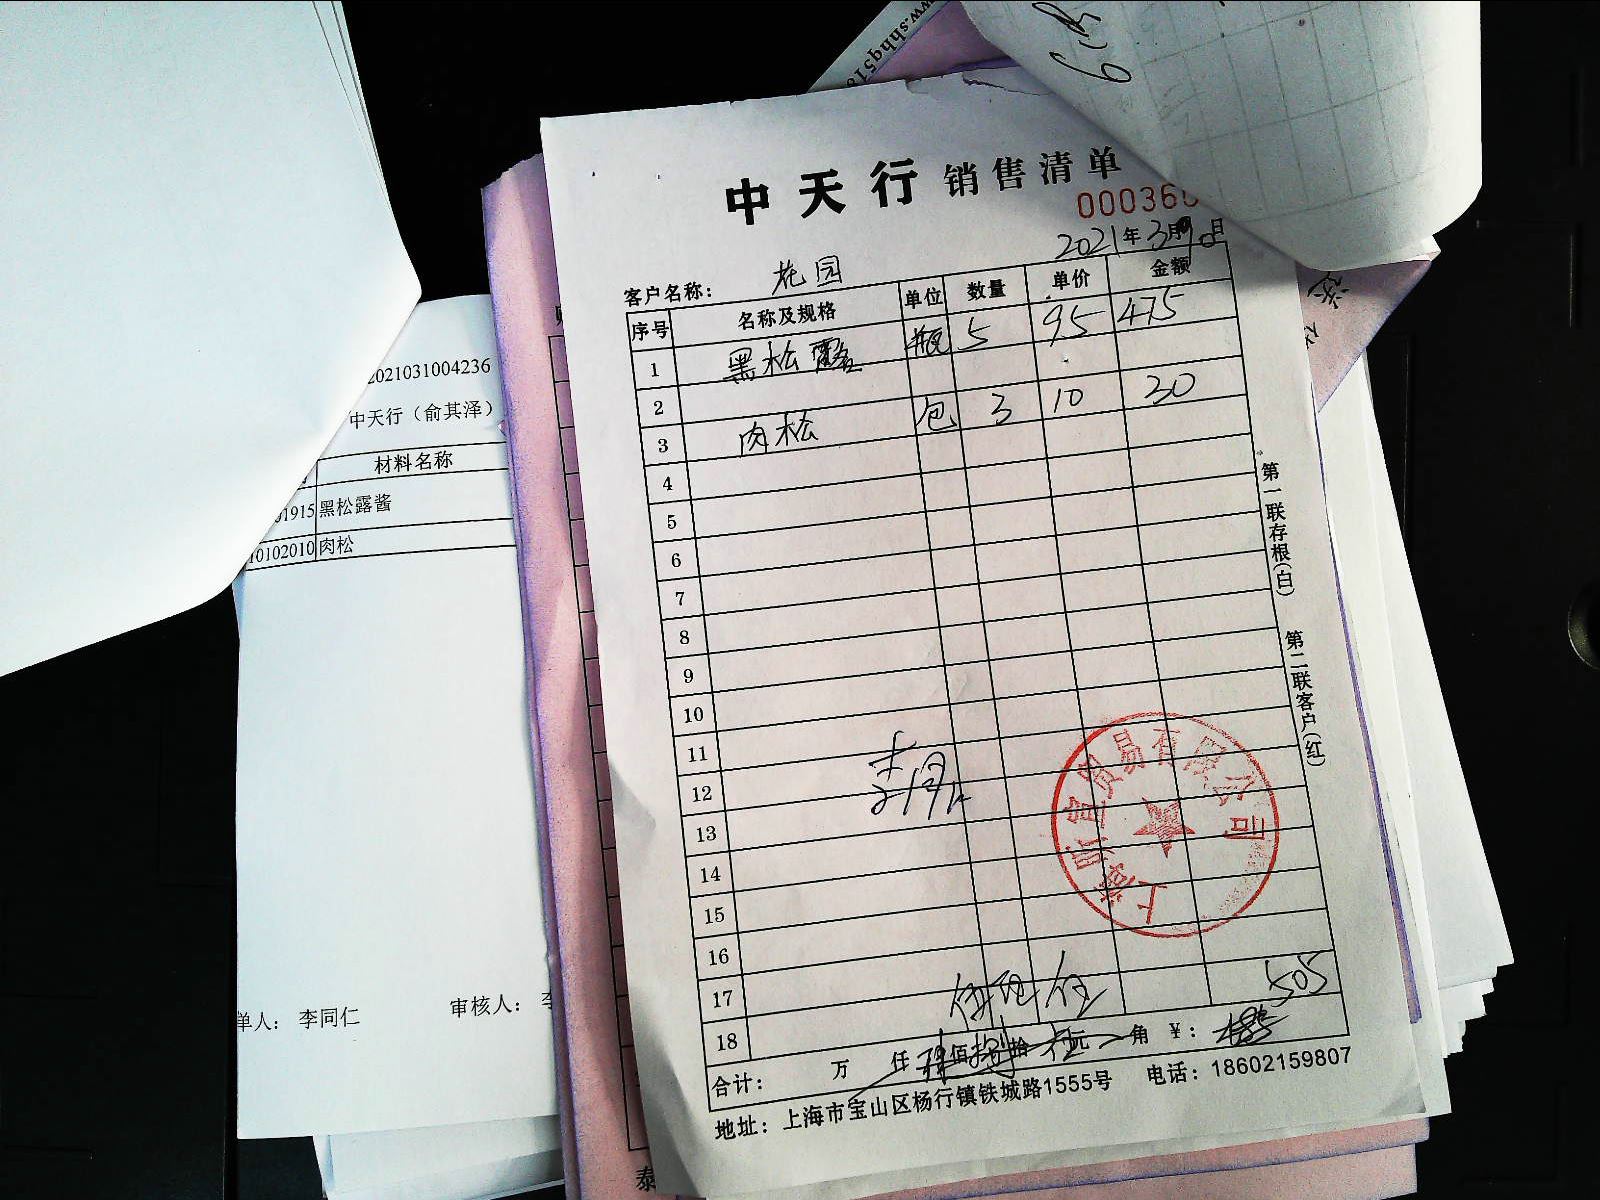 www.shhq518
中天行 销售清单
00036
2021年3月 日
客户名称： 花园
序号 名称及规格 单位 数量 单价 金额
1 黑松露 瓶 5 95 475
2
3 肉松 包 3 10 30
4
5
6
7
8
9
10
11
12
13
14
15
16
17
18
505
合计： 万 仟 佰 拾 元 角 ￥：
地址：上海市宝山区杨行镇铁城路1555号 电话：18602159807
第一联存根(白)
第二联客户(红)
上海斯宜贸易有限公司
2021031004236
中天行（俞其泽）
材料名称
01915 黑松露酱
10102010 肉松
单人： 李同仁 审核人： 李
泰